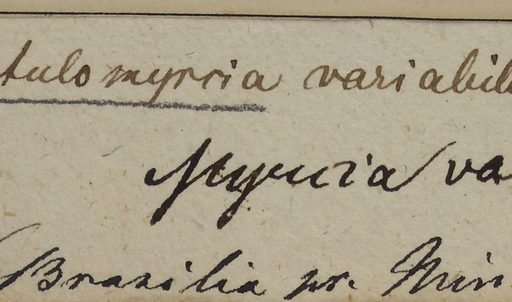 tulomyrcia variabil
Myrcia va
Brasilia pr. Min